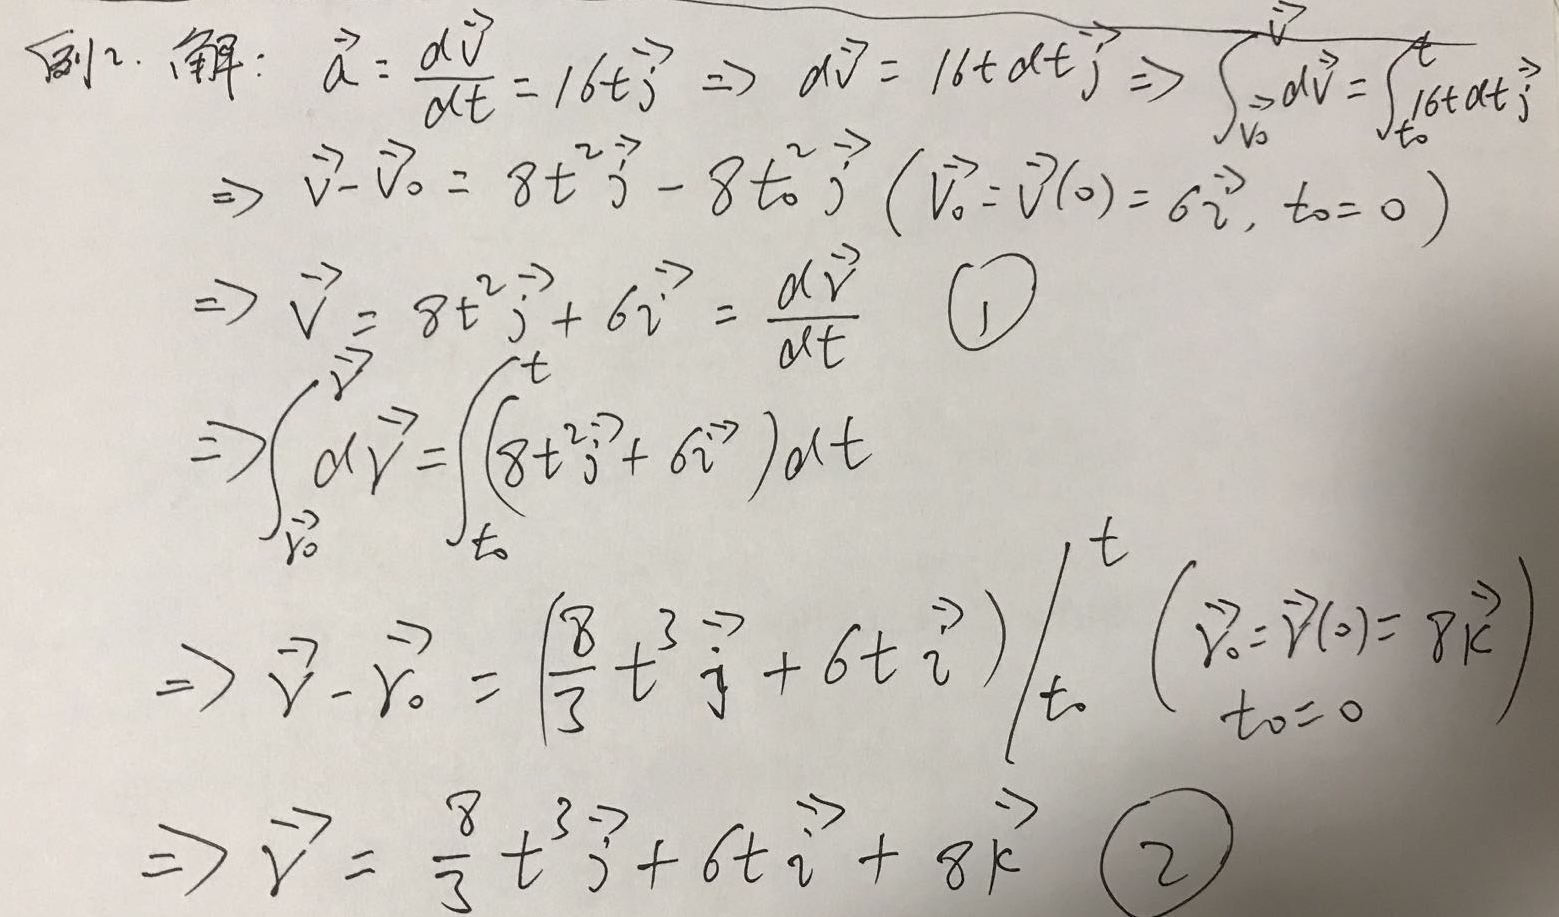 例2. 解: $\vec{a} = \frac{d\vec{v}}{dt} = 16t\vec{j} \Rightarrow d\vec{v} = 16t\,dt\,\vec{j} \Rightarrow \int_{\vec{v}_0}^{\vec{v}} d\vec{v} = \int_{t_0}^{t} 16t\,dt\,\vec{j}$
$\Rightarrow \vec{v} - \vec{v}_0 = 8t^2\vec{j} - 8t_0^2\vec{j}$ ($\vec{v}_0 = \vec{v}(0) = 6\vec{i}, t_0 = 0$)
$\Rightarrow \vec{v} = 8t^2\vec{j} + 6\vec{i} = \frac{d\vec{r}}{dt}$ ①
$\Rightarrow \int_{\vec{r}_0}^{\vec{r}} d\vec{r} = \int_{t_0}^{t} (8t^2\vec{j} + 6\vec{i})dt$
$\Rightarrow \vec{r} - \vec{r}_0 = \left(\frac{8}{3}t^3\vec{j} + 6t\vec{i}\right)\Big/_{t_0}^{t}$ ($\vec{r}_0 = \vec{r}(0) = 8\vec{k}$
$t_0 = 0$)
$\Rightarrow \vec{r} = \frac{8}{3}t^3\vec{j} + 6t\vec{i} + 8\vec{k}$ ②